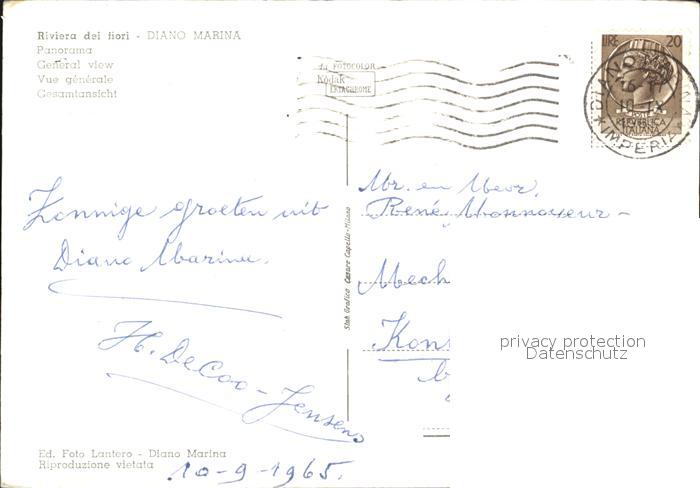 Riviera dei fiori - DIANO MARINA
Panorama
General view
Vue générale
Gesamtansicht
da FOTOCOLOR
Kodak
EKTACHROME
LIRE 20
POSTE
REPVBBLICA
ITALIANA
DIANO MARINA
* IMPERIA *
Zonnige groeten uit
Diano Marina.
H. DeCoo-Jensens
Mr. en Mevr.
René Monnoyeur-
Mech
Kon
Stab. Grafico Cesare Capello-Milano
privacy protection
Datenschutz
Ed. Foto Lantero - Diano Marina
Riproduzione vietata
10-9-1965.